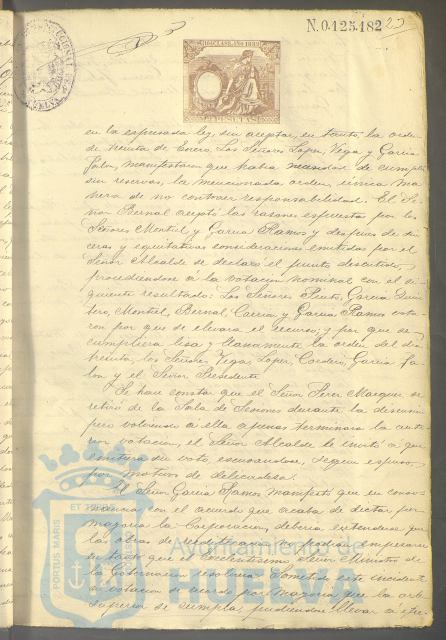 N.0.125.182
en la expresada ley, sin aceptar, en tanto, la orden
de treinta de Enero. Los Señores Lopez, Vega y Garcia
manifestaron que habia
sin reservas, la mencionada orden, única ma
nera de no contraer responsabilidad. El Se
ñor Bernal aceptó las razones expuestas por los
Señores Montiel y Garcia Ramos y despues de
y equitativas consideraciones emitidas por el
Señor Alcalde se declaró el punto discutido,
procediendose á la votacion nominal con el si
guiente resultado: Los Señores Garcia
Montiel, Bernal, y Garcia Ramos vota
ron por que se elevara el recurso; y por que se
cumpliera lisa y llanamente la orden del dia
treinta, los Señores Vega, Lopez, Cordero, Garcia
y el Señor Presidente.
Se hace constar que el Señor Perez se
retiró de la Sala de Sesiones durante la discusion
pero volviendo á ella apenas terminara la ante
rior votacion, el Señor Alcalde le invitó á que
emitiera su voto, escusandose, segun expuso
por motivos de delicadeza.
El Señor Garcia Ramos manifestó que en conso
nancia con el acuerdo que acaba de dictar por
mayoria la Corporacion, deberia entenderse que
las obras de no podian empezarse
en tanto que el Excelentisimo Señor Ministro de
la Gobernacion resolviera. Sometido este incidente
á votacion se acordó por mayoria que la orden
superior se cumpla, pudiendose llevar á efec
PORTUS MARIS
ET TERRAE
Ayuntamiento de
HUELVA